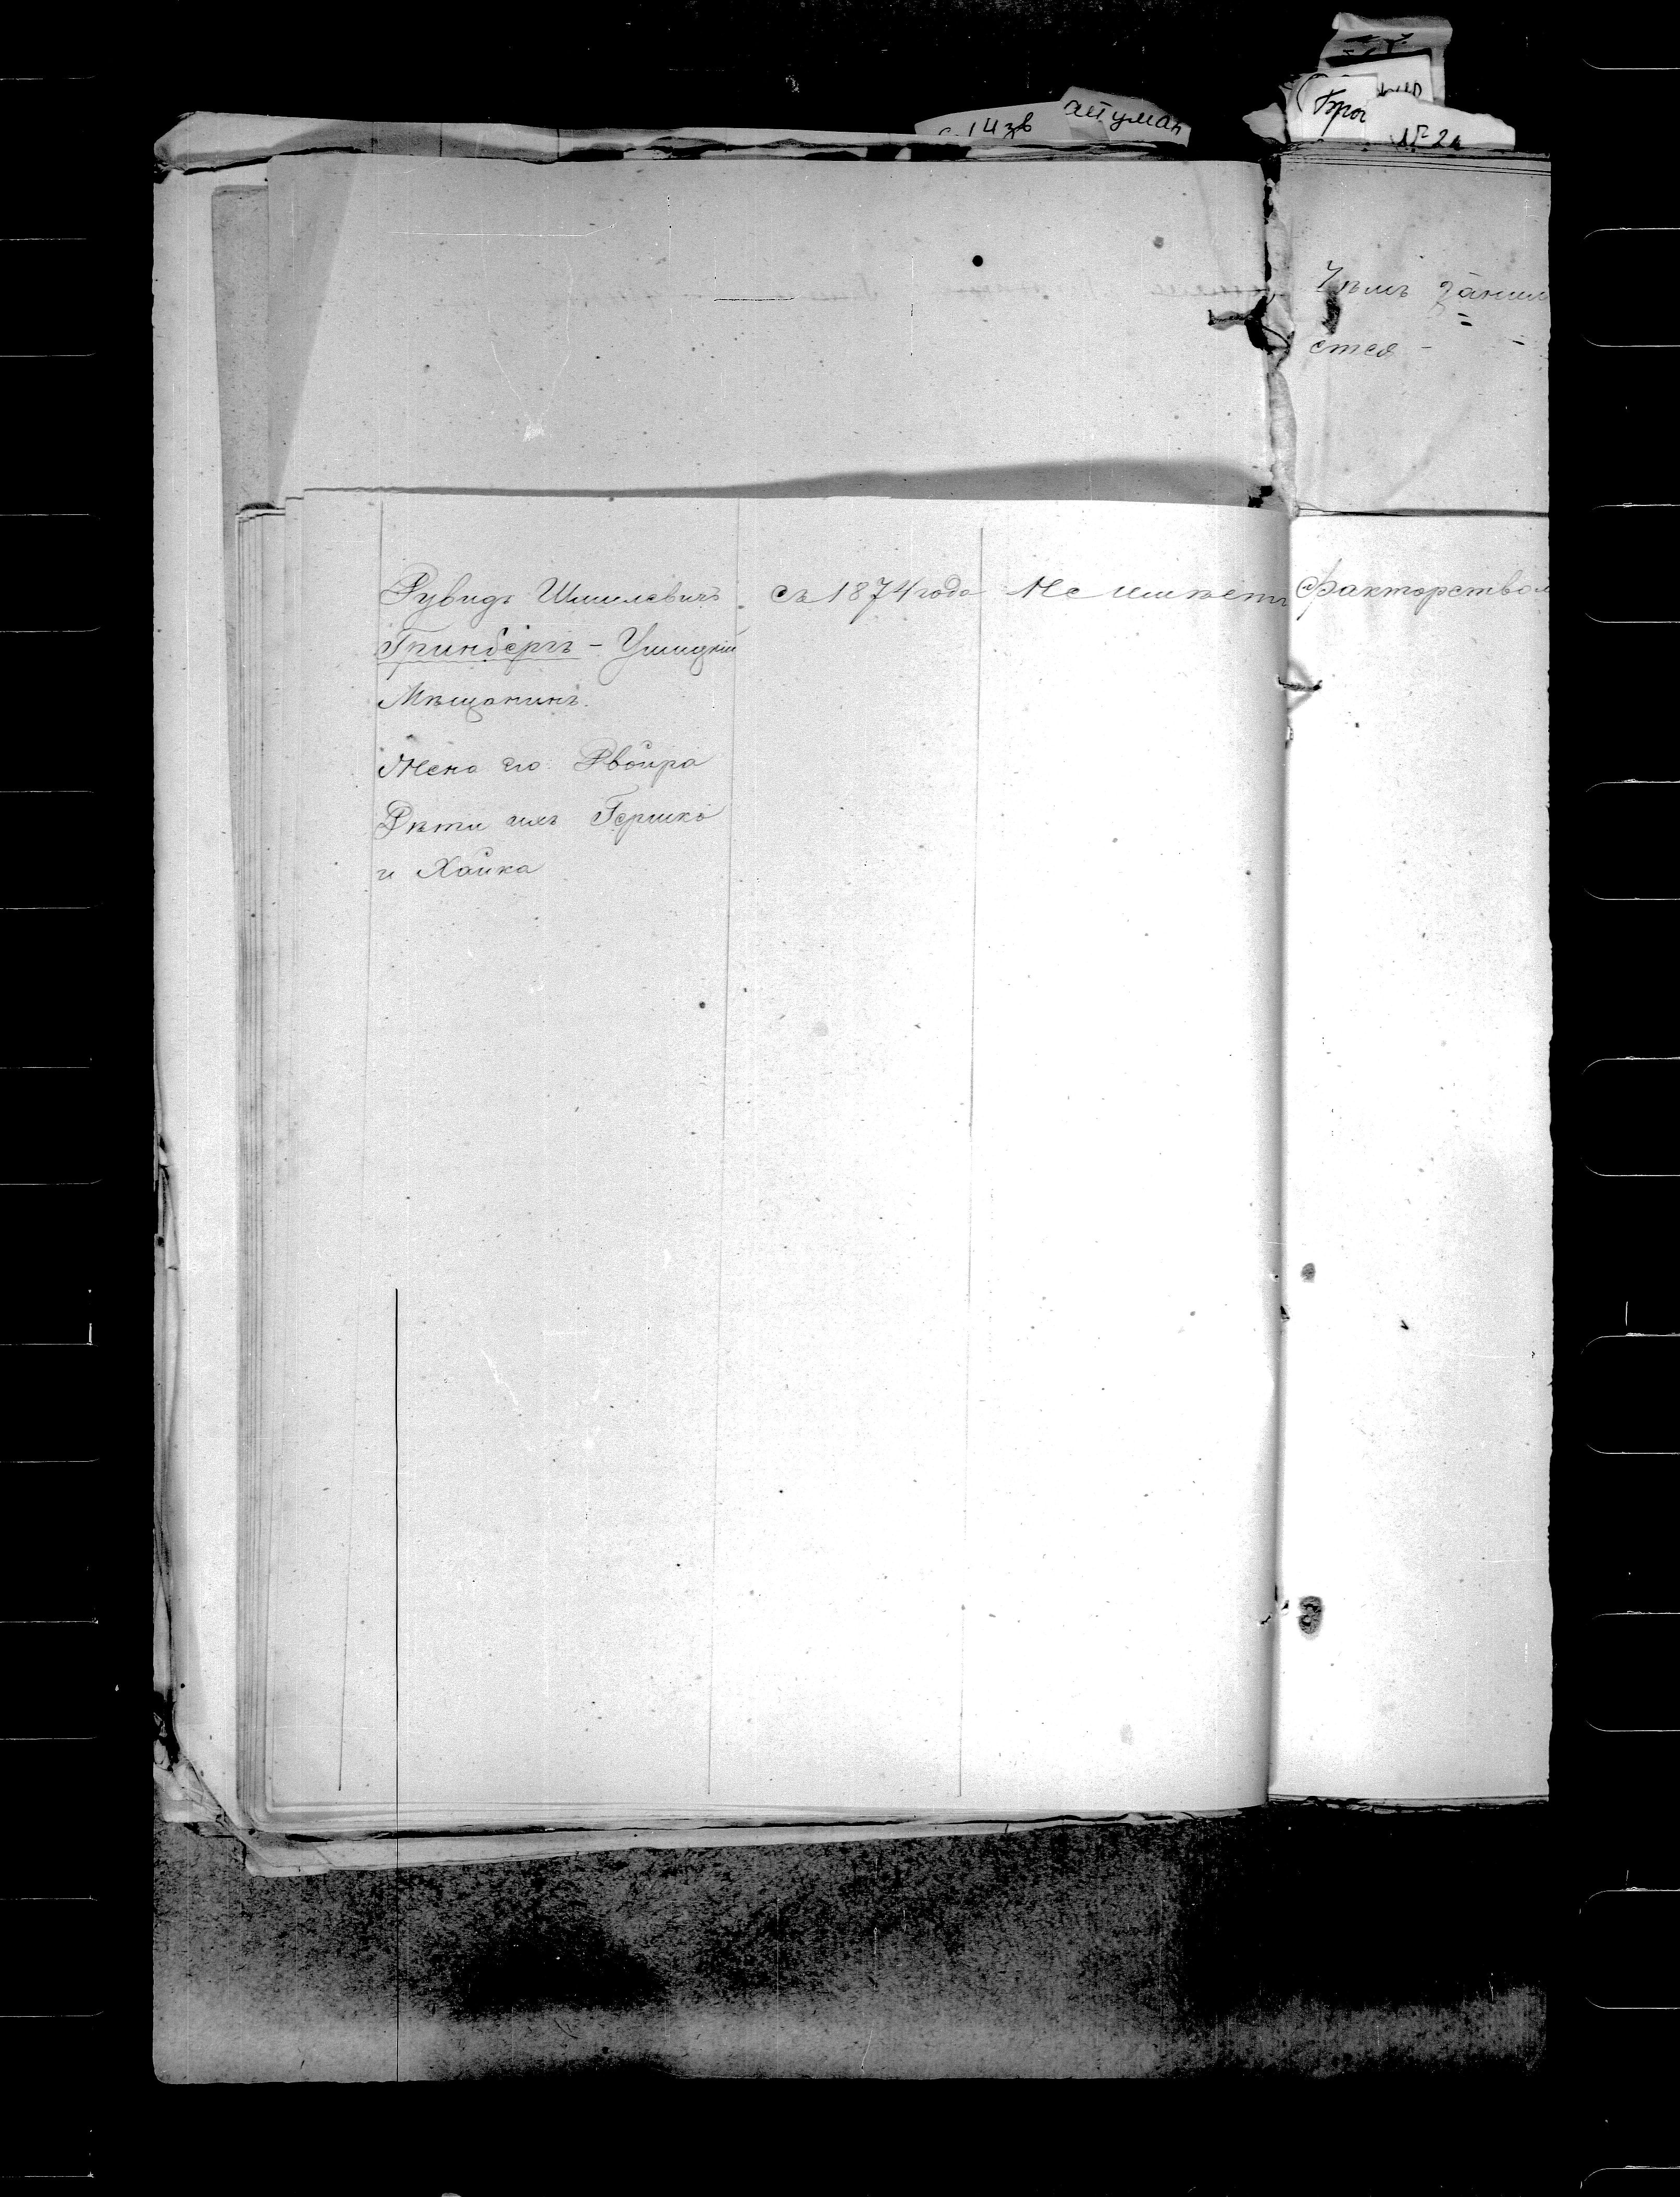 атуман
Чѣмъ занима
ется
Рувидъ Шмилевичъ
Гринбергъ - Ушицкій
Мѣщанинъ.
Жена его Двойра
Дѣти ихъ Гершко
и Хайка
съ 1874 года
Не имѣетъ
факторством